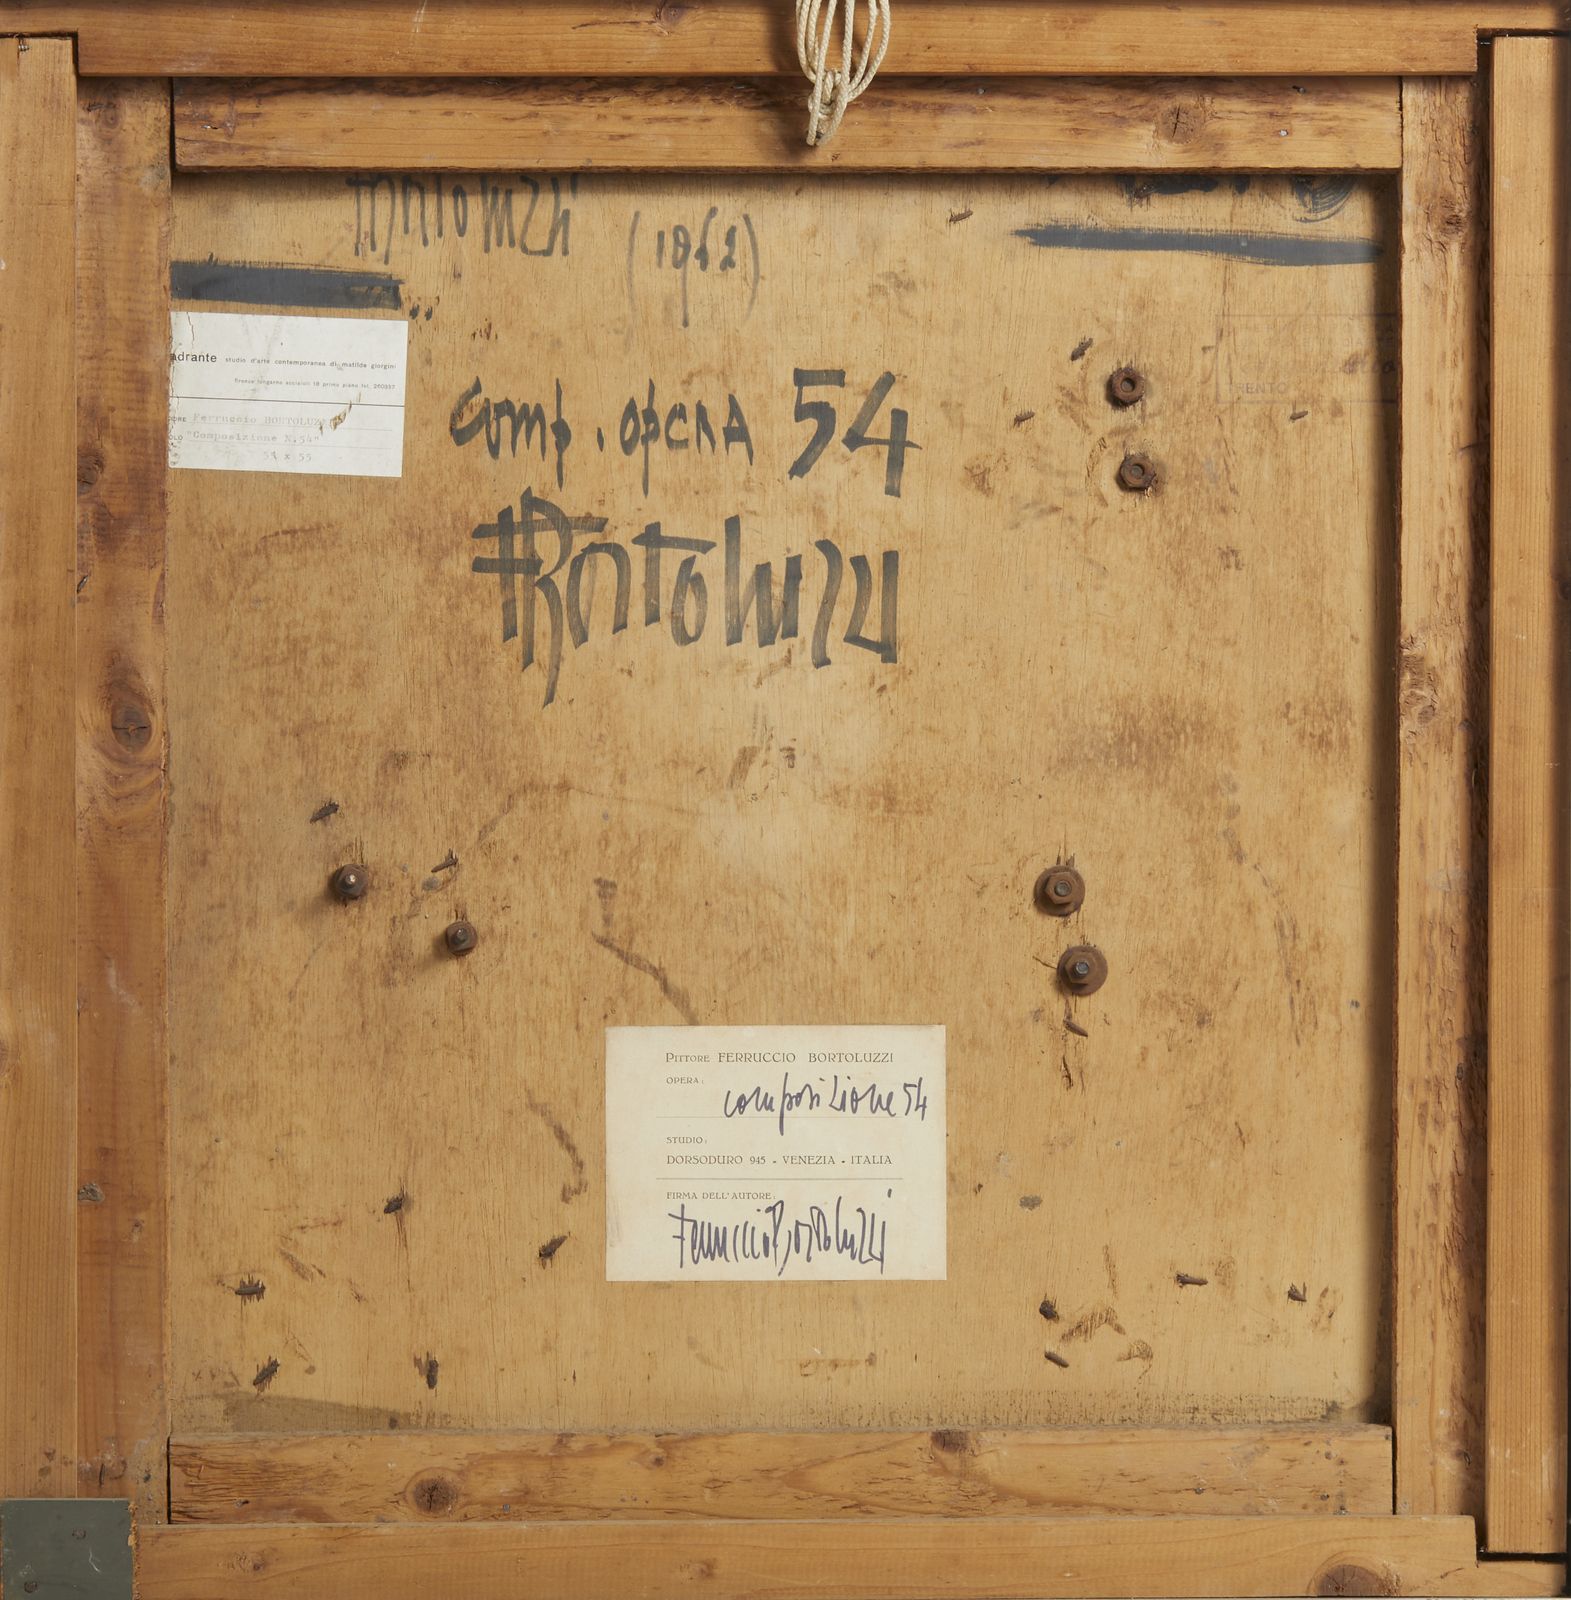 Bortoluzzi (1962)
adrante studio d'arte contemporanea di matilde giorgini
firenze lungarno acciaioli 18 primo piano tel. 260337
ORE Ferruccio BORTOLUZZ
OLO "Composizione N.54"
55 x 55
comp. opera 54
FBortoluzzi
RENTO
PITTORE FERRUCCIO BORTOLUZZI
OPERA: composizione 54
STUDIO:
DORSODURO 945 - VENEZIA - ITALIA
FIRMA DELL'AUTORE:
Ferruccio Bortoluzzi